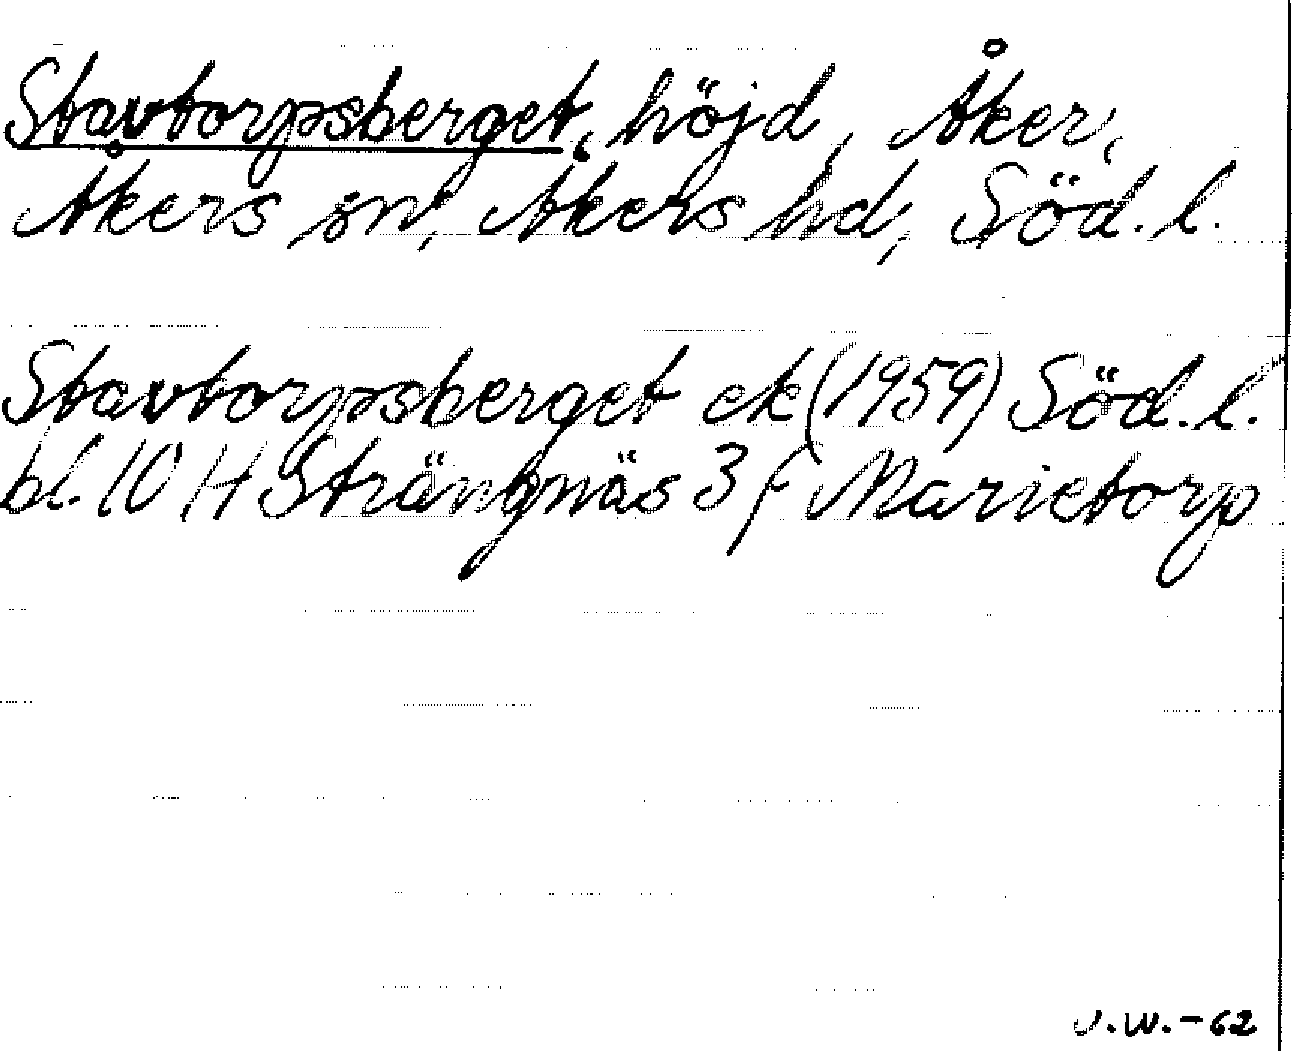 Stavtorpsberget, höjd, Åker,
Åkers sn, Åkers hd, Söd. l.
Stavtorpsberget ek (1959) Söd. l.
bl. 10 H Strängnäs 3 f Marietorp
J.W.-62